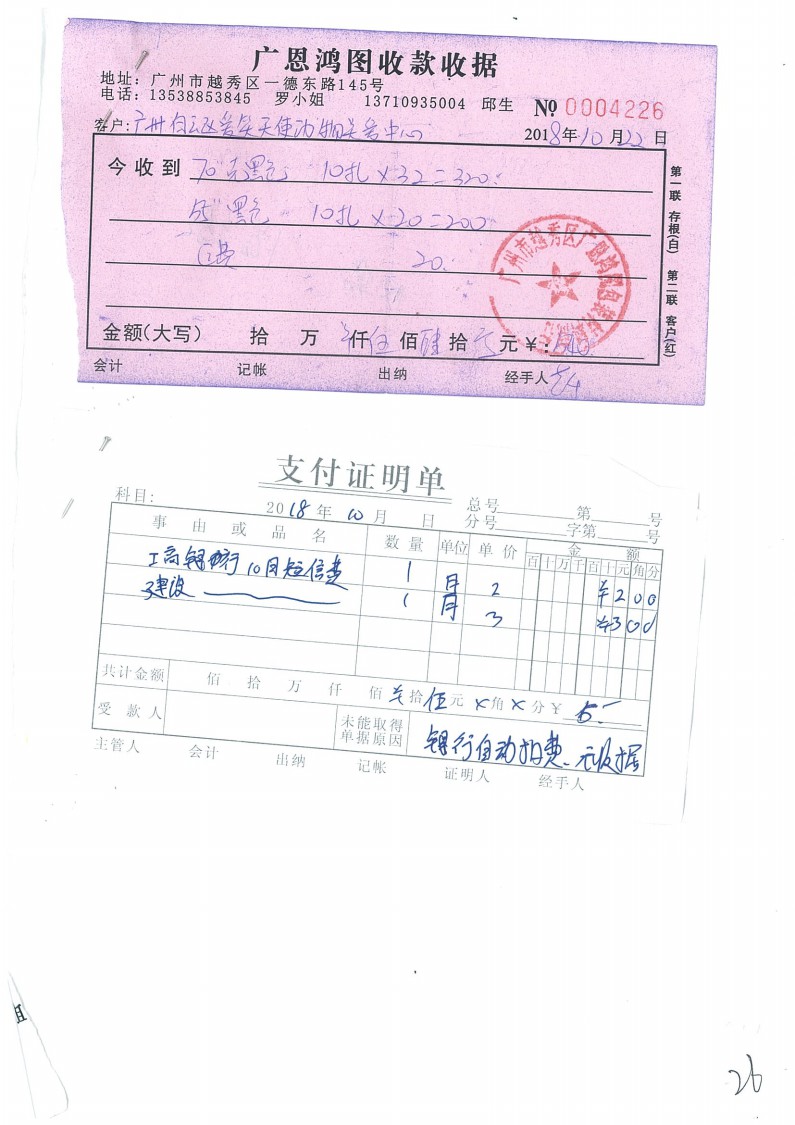 广恩鸿图收款收据
地址：广州市越秀区一德东路145号
电话：13538853845 罗小姐 13710935004 邱生 № 0004226
客户：广州白云区 天使动物 中心 2018年10月22日
今收到 70 黑色 10扎×32=320.
黑色 10扎×20=200
20.
金额(大写) 拾 万 仟伍佰肆拾 元¥:540
会计 记帐 出纳 经手人
第一联 存根(白) 第二联 客户(红)
广州市越秀区广恩鸿图包装
支付证明单
科目: 2018年10月 日 总号 第 号
分号 字第 号
事由或品名 数量 单位 单价 金额
百十万千百十元角分
工商银行10月短信费 1 月 2 ¥200
建设 1 月 3 ¥300
共计金额 佰 拾 万 仟 佰 拾伍元×角×分¥ 5.-
受款人 未能取得单据原因 银行自动扣费、无收据
主管人 会计 出纳 记帐 证明人 经手人
26